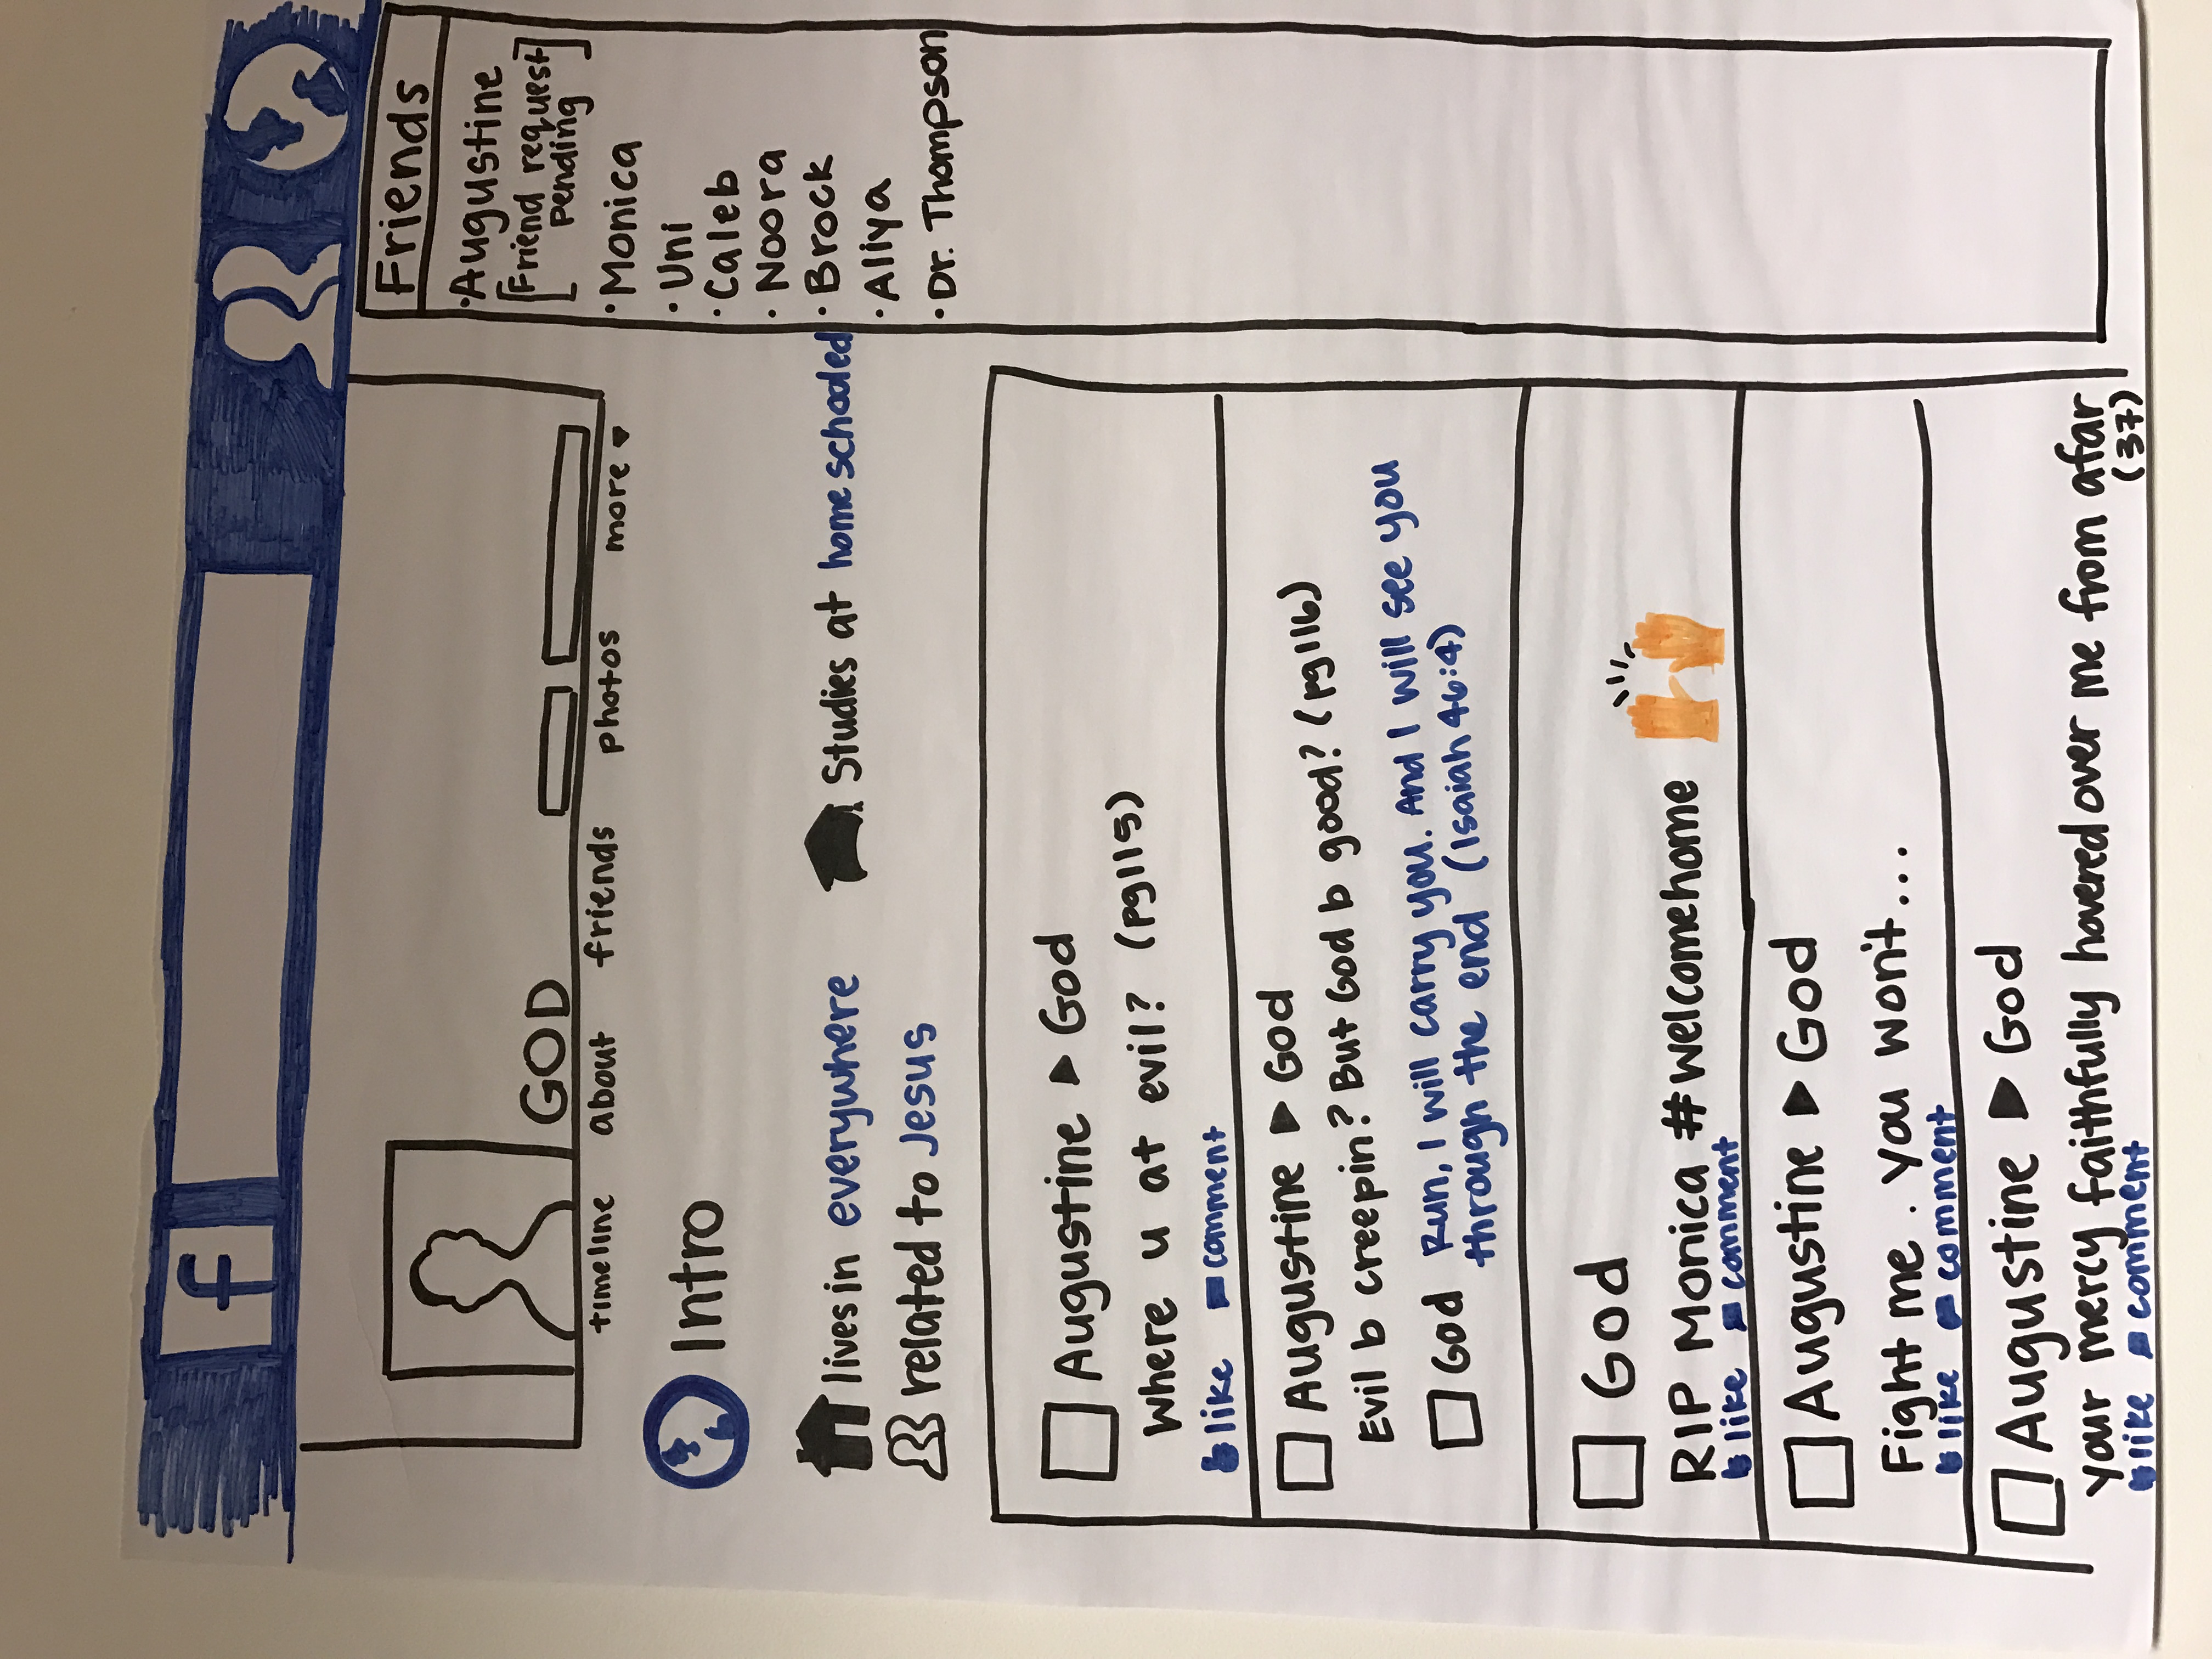 f
GOD
timeline about friends photos more
Intro
lives in everywhere
Studies at home schooled
related to Jesus
Friends
• Augustine
[Friend request
pending]
• Monica
• Uni
• Caleb
• Noora
• Brock
• Aliya
• Dr. Thompson
Augustine ▶ God
Where u at evil? (pg115)
like comment
Augustine ▶ God
Evil b creepin? But God b good? (pg116)
God Run, I will carry you. And I will see you
through the end (Isaiah 46:4)
God
RIP Monica #welcomehome
like comment
Augustine ▶ God
Fight me. You won't....
like comment
Augustine ▶ God
Your mercy faithfully hovered over me from afar
(37)
like comment